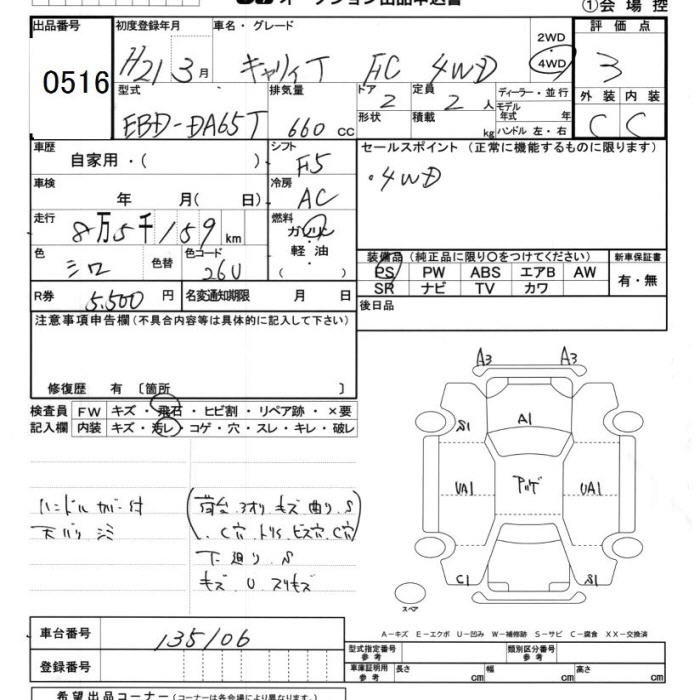 オークション出品申込書 ①会場控
出品番号 初度登録年月 車名・グレード 2WD 評価点
0516 H21 3月 キャリイT FC 4WD 4WD 3
型式 排気量 ドア 2 定員 2人 ディーラー・並行 外装 内装
EBD-DA65T 660cc 形状 積載 kg モデル年式 年 ハンドル 左・右 C C
車歴 シフト セールスポイント (正常に機能するものに限ります)
自家用・( ) F5 ・4WD
車検 冷房
年 月( 日) AC
走行 燃料
8万5千159km ガソリン
色 色替 色コード 軽・油 装備品 (純正品に限り○をつけてください) 新車保証書
シロ 26U ( ) PS PW ABS エアB AW 有・無
SR ナビ TV カワ
R券 5,500円 名変通知期限 月 日 後日品
注意事項申告欄(不具合内容等は具体的に記入して下さい)
修復歴 有 〔箇所 〕
検査員 FW キズ・飛石・ヒビ割・リペア跡・×要
記入欄 内装 キズ・汚レ・コゲ・穴・スレ・キレ・破レ
A3 A3
S1 A1
UA1 アゲ UA1
C1 S1
スペア
ハンドルカバー付
天バリシミ
荷台.3オリ キズ 曲り.S
.C穴.トリイ ビス穴.C穴
下廻り.S
キズ.U.スリキズ
A-キズ E-エクボ U-凹み W-補修跡 S-サビ C-腐食 XX-交換済
車台番号 135106
型式指定番号 参考 類別区分番号 参考
登録番号 車庫証明用 参考 長さ cm 幅 cm 高さ cm
希望出品コーナー(内容は各会場により異なります。)